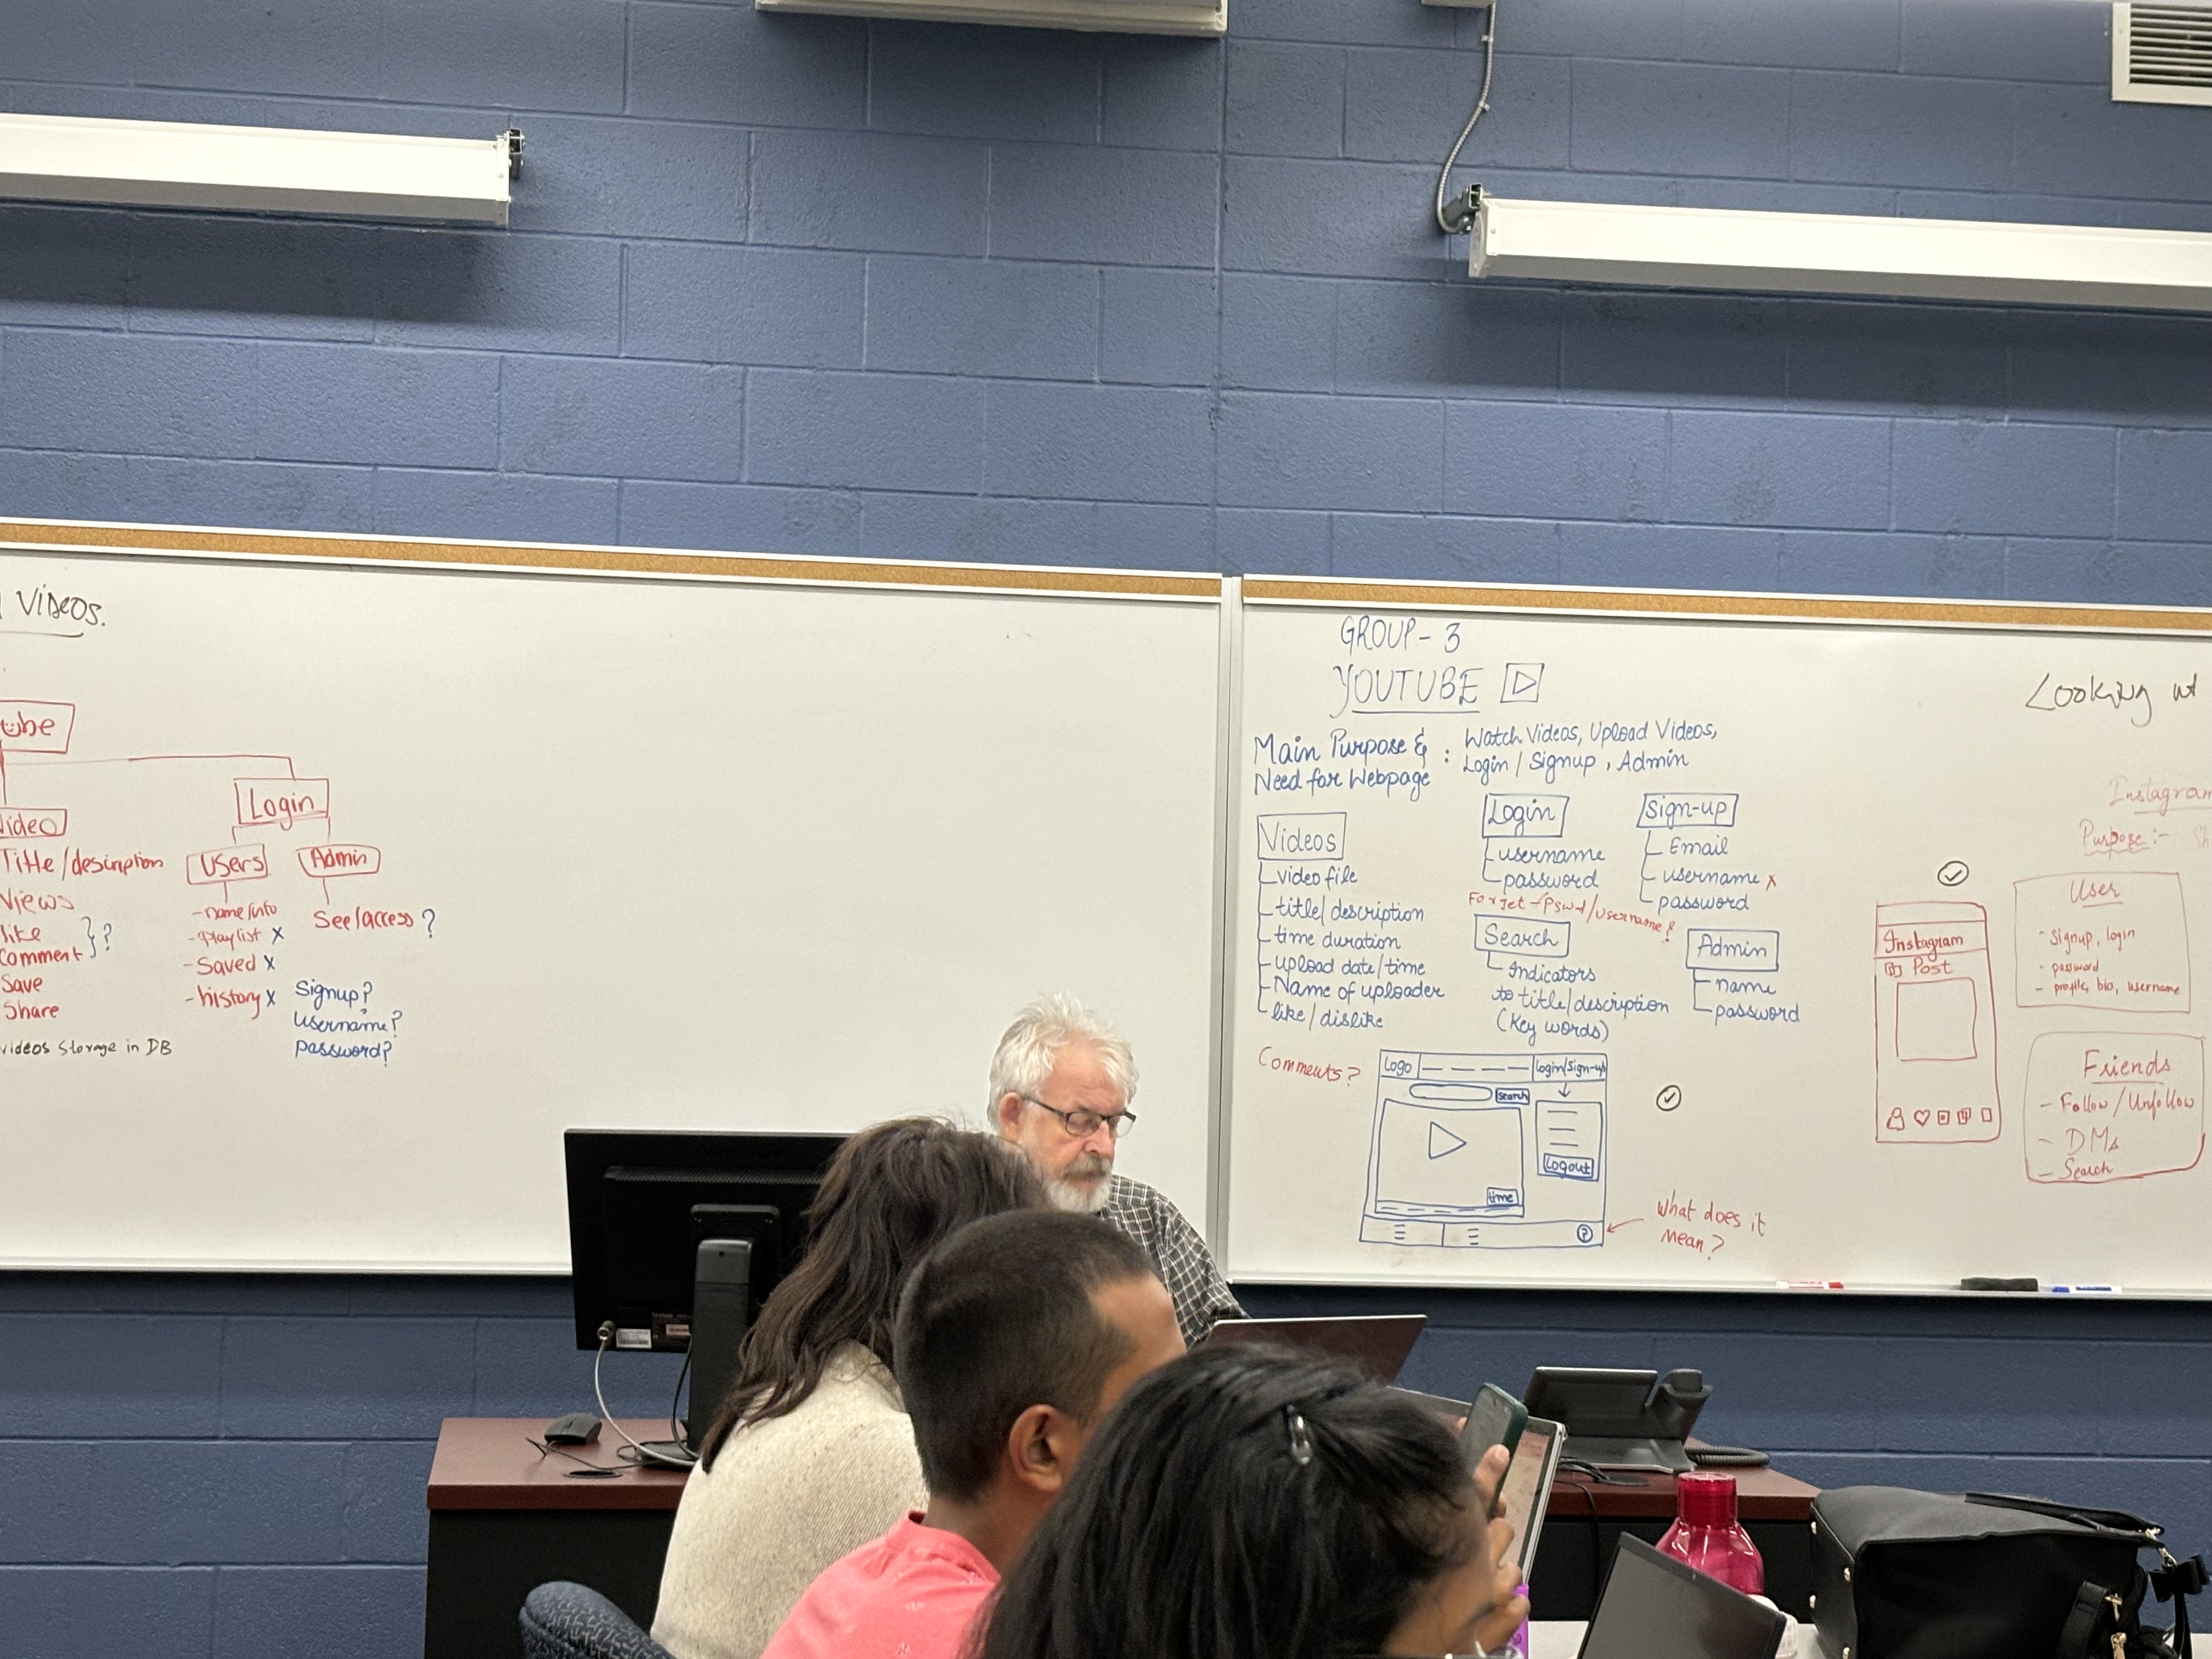 VIDEOS.
ube
Login
Video
Users
Admin
Title/description
Views
like
Comment } ?
Save
Share
- name/info
- playlist X
- Saved X
- history X
See/access ?
Signup?
username?
password?
videos storage in DB
GROUP - 3
YOUTUBE
Main Purpose &
Need for Webpage
: Watch Videos, Upload Videos,
Login / Signup, Admin
Videos
video file
title/description
time duration
upload date/time
Name of uploader
like/dislike
Comments?
Login
username
password
Forjet-Pswd/username?
Sign-up
Email
username x
password
Search
Indicators
to title/description
(Key words)
Admin
name
password
Logo
Login/Sign-up
search
Logout
time
?
What does it
mean?
Looking at
Instagram
Purpose :- Sh
Instagram
Post
User
- Signup, login
- password
- profile, bio, username
Friends
- Follow/Unfollow
- DMs
- Search